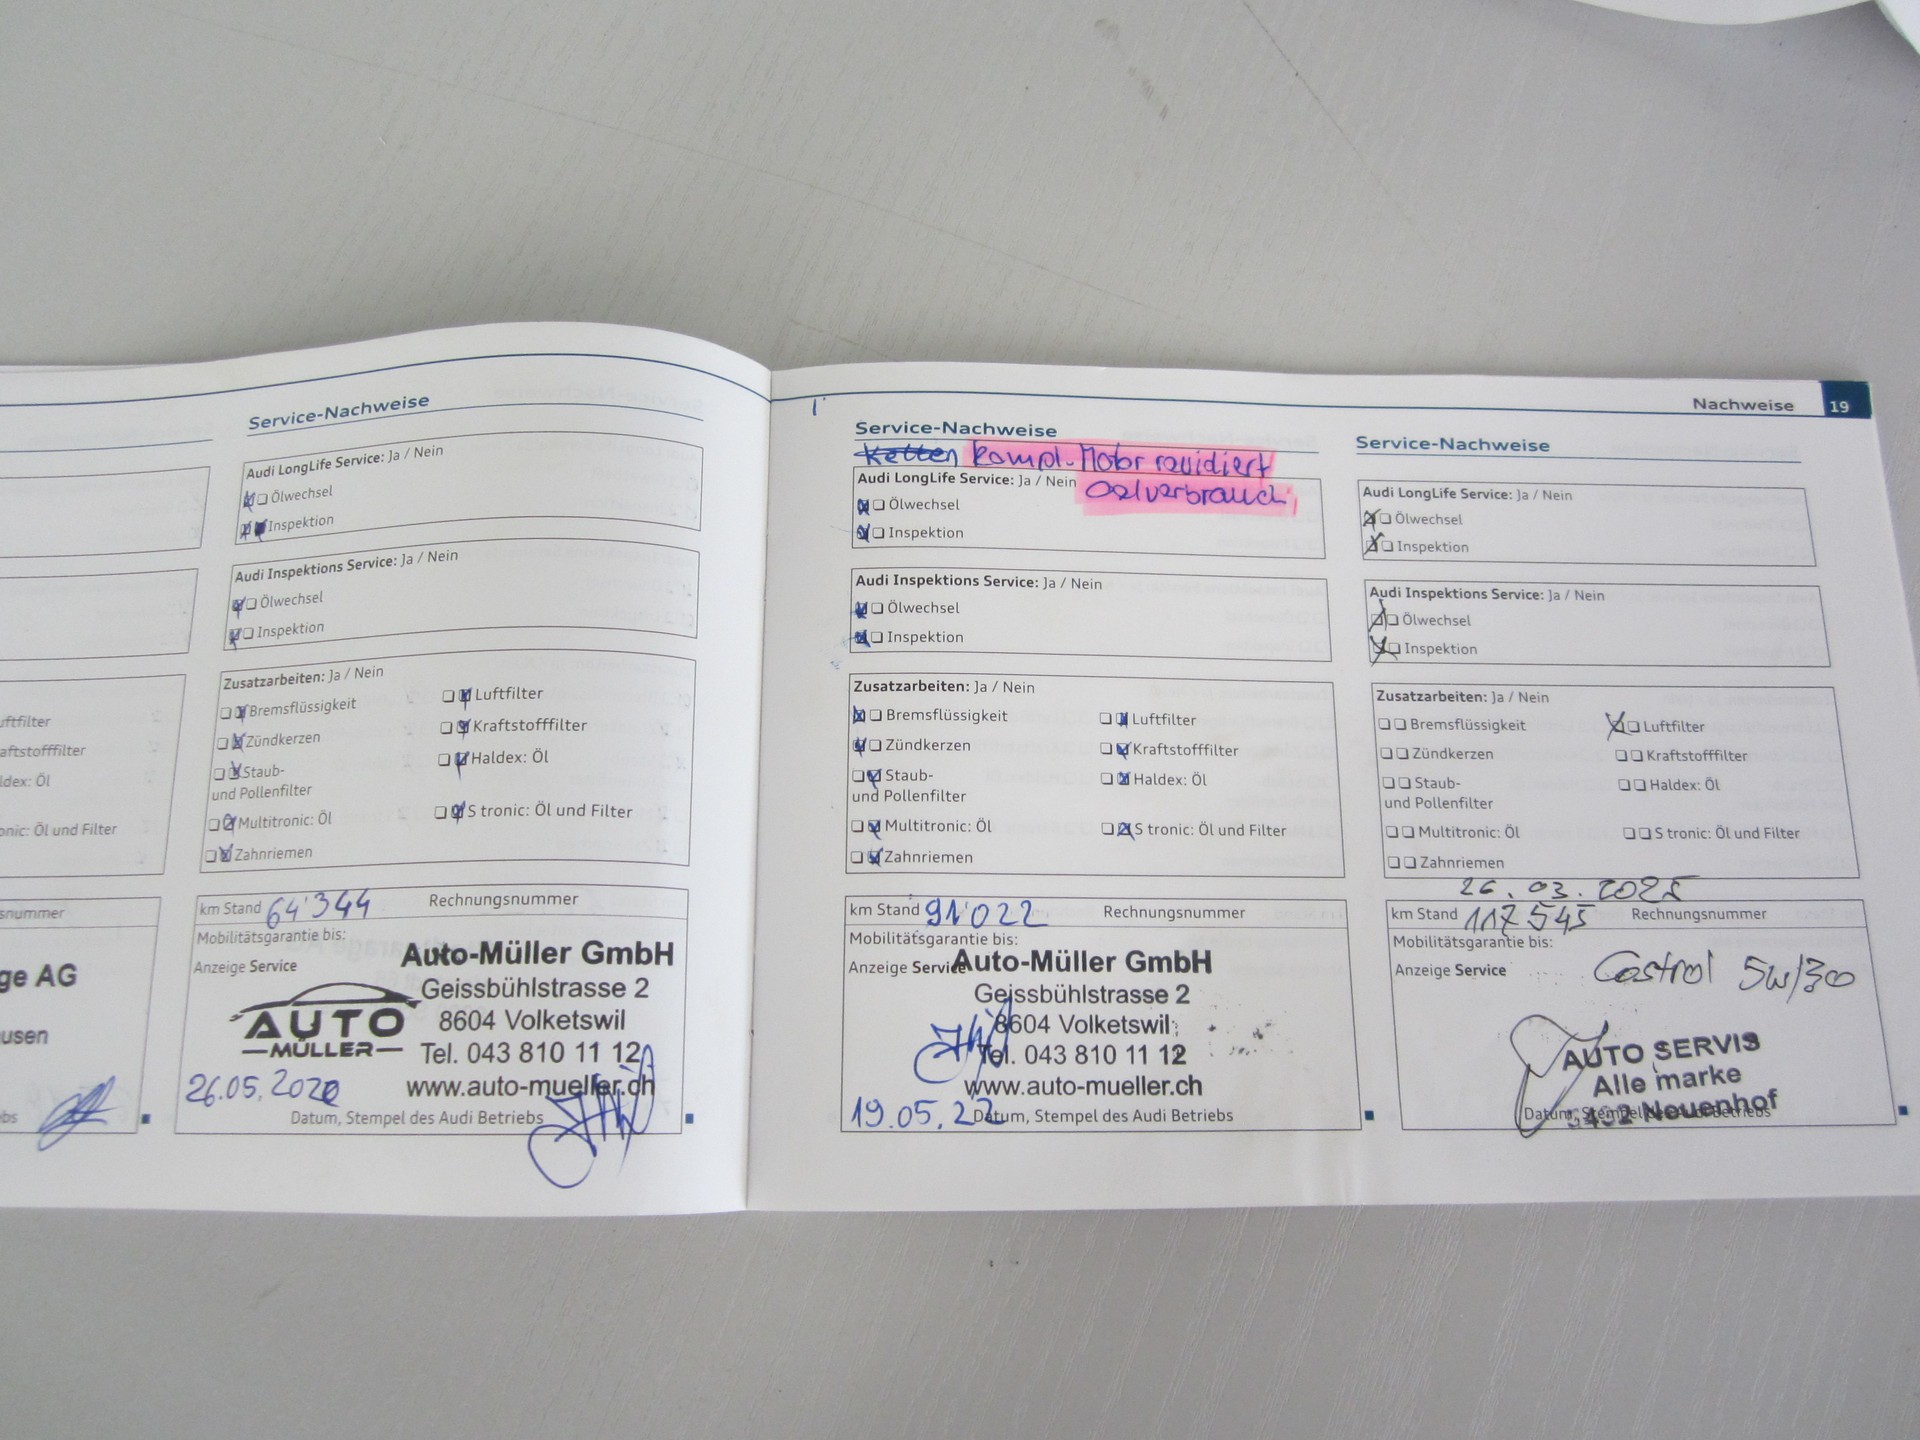 uftfilter
aftstofffilter
ldex: Öl
onic: Öl und Filter
snummer
ge AG
usen
ebs
Service-Nachweise
Audi LongLife Service: Ja / Nein
Ölwechsel
Inspektion
Audi Inspektions Service: Ja / Nein
Ölwechsel
Inspektion
Zusatzarbeiten: Ja / Nein
Bremsflüssigkeit
Luftfilter
Zündkerzen
Kraftstofffilter
Staub-
und Pollenfilter
Haldex: Öl
Multitronic: Öl
S tronic: Öl und Filter
Zahnriemen
km Stand 64'344 Rechnungsnummer
Mobilitätsgarantie bis:
Anzeige Service
Auto-Müller GmbH
Geissbühlstrasse 2
8604 Volketswil
Tel. 043 810 11 12
www.auto-mueller.ch
AUTO
MÜLLER
26.05.2020
Datum, Stempel des Audi Betriebs
Nachweise 19
Service-Nachweise
Ketten kompl. Motor revidiert
Oelverbrauch
Audi LongLife Service: Ja / Nein
Ölwechsel
Inspektion
Audi Inspektions Service: Ja / Nein
Ölwechsel
Inspektion
Zusatzarbeiten: Ja / Nein
Bremsflüssigkeit
Luftfilter
Zündkerzen
Kraftstofffilter
Staub-
und Pollenfilter
Haldex: Öl
Multitronic: Öl
S tronic: Öl und Filter
Zahnriemen
km Stand 91'022 Rechnungsnummer
Mobilitätsgarantie bis:
Anzeige Service
Auto-Müller GmbH
Geissbühlstrasse 2
8604 Volketswil
Tel. 043 810 11 12
www.auto-mueller.ch
19.05.22
Datum, Stempel des Audi Betriebs
Service-Nachweise
Audi LongLife Service: Ja / Nein
Ölwechsel
Inspektion
Audi Inspektions Service: Ja / Nein
Ölwechsel
Inspektion
Zusatzarbeiten: Ja / Nein
Bremsflüssigkeit
Luftfilter
Zündkerzen
Kraftstofffilter
Staub-
und Pollenfilter
Haldex: Öl
Multitronic: Öl
S tronic: Öl und Filter
Zahnriemen
26.03.2025
km Stand 117545 Rechnungsnummer
Mobilitätsgarantie bis:
Anzeige Service
Castrol 5w/30
AUTO SERVIS
Alle marke
5432 Neuenhof
Datum, Stempel des Audi Betriebs